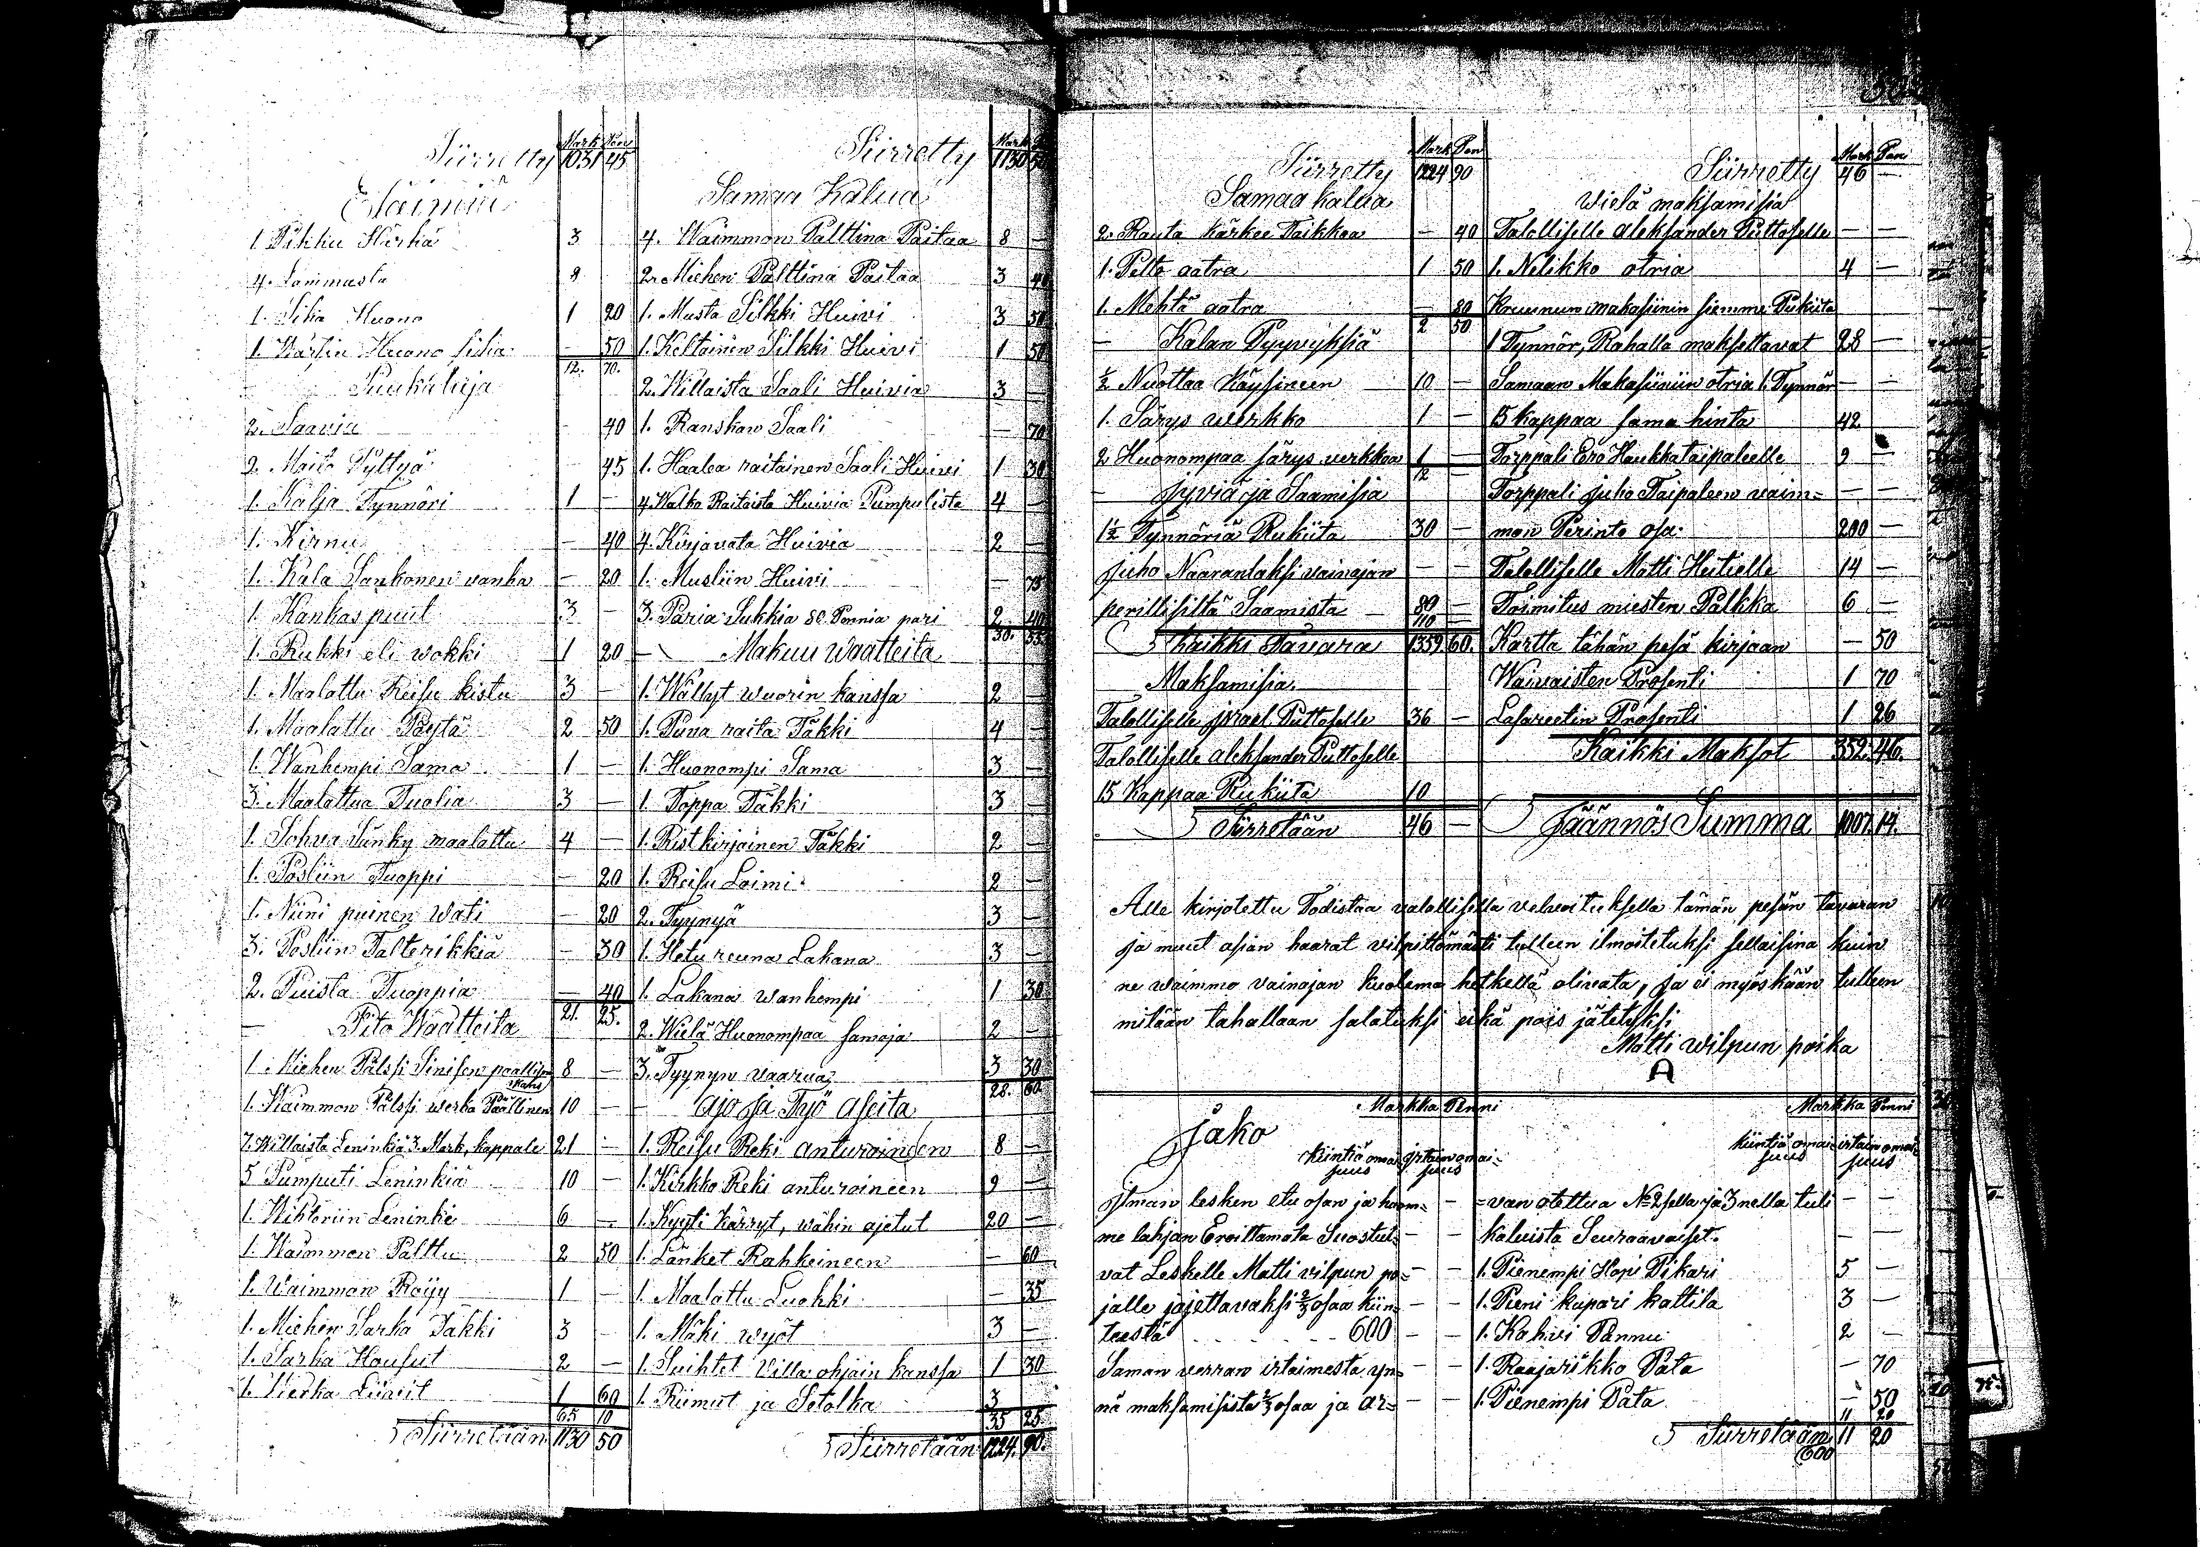 Mark Pen
Siirretty 1031 45
Eläimiä
1. Pikku Härkä 3
4. Lammasta 8
1. Sika Huono 1 20
1. Huono sika — 50
12. 70.
Puukaluja
2. Saavia — 40
2. Maito Pyttyä — 45
1. Kalja Tynnöri 1 —
1. Kirnu — 40
1. Kala Sankonen vanha — 20
1. Kankas puut 3 —
1. Rukki eli wokki 1 20
1. Maalattu Reisu kistu 3 —
1. Maalattu Pöytä 2 50
1. Wanhempi Sama 1 —
3. Maalattua Tuolia 3 —
1. Sohva Sänky maalattu 4 —
1. Posliin Tuoppi — 20
1. Niini puinen Wati — 20
3. Posliin Talterikkiä — 30
2. Puista Tuoppia — 40
21. 25.
— Pito Waatteita
1. Miehen Pälssi Sinisen paallisen kans 8 —
1. Waimmon Pälssi werka Päällinen 10 —
7. Willaista Leninkiä 3. Mark. kappale 21 —
5 Pumpuli Leninkiä 10 —
1. Wiktoriin Leninki 6 —
1. Waimmon Palttu 2 50
1. Waimmon Röijy 1 —
1. Miehen Sarka Takki 3 —
1. Sarka Housut 2 —
1. Werka Liivit 1 60
65 10
Siirretään 1130 50
Mark
Siirretty 1130 50
Samaa Kalua
4. Waimmon Palttina Paitaa 8 —
2. Miehen Palttina Paitaa 3 40
1. Musta Silkki Huivi 3 50
1. Keltainen Silkki Huivi 1 50
2. Willaista Saali Huivia 3 —
1. Ranskan Saali — 70
1. Haalea raitainen Saali Huivi 1 30
4. Walko Raitaista Huivia Pumpulista 4 —
4. Kirjavata Huivia 2 —
1. Musliin Huivi — 75
3. Paria Sukkia 80 Pennia pari 2 40
30. 55
— Makuu Waatteita
1. Wällyt wuorin kanssa 2 —
1. Puna raita Täkki 4 —
1. Huonompi Sama 3 —
1. Toppa Täkki 3 —
1. Ristkirjainen Täkki 2 —
1. Reisu Loimi 2 —
2. Tyynyä 3 —
1. Hetu reuna Lakana 3 —
1. Lakana wanhempi 1 30
2. Wielä Huonompaa samoja 2 —
3. Tyynyn vaarua 3 30
28. 60
— Ajo ja Työ Aseita
1. Reisu Reki anturoineen 8 —
1. Kirkko Reki anturoineen 9 —
1. Kyyti Kärryt, wähin ajetut 20 —
1. Länket Rahkeineen — 60
1. Maalattu Luokki — 35
1. Mäki wyöt 3 —
1. Suihtet Villa ohjain kanssa 1 30
1. Riimut ja Setolka 3
35 25
Siirretään 1224. 90.
Mark Pen
Siirretty 1224 90
Samaa kalua
2. Rauta kärkee Taikkoa — 40
1. Pelto aatra 1 50
1. Mehtä aatra — 80
2 50
— Kalan Pyyvyksiä
½ Nuottaa Käysineen 10 —
1. Särys werkko 1 —
2 Huonompaa särys verkkoa 1 —
12
— Jyviä ja Saamisia
1½ Tynnöriä Rukiita 30 —
Juho Naarantaksi vainajan — —
perillisiltä Saamista 80 —
110 —
Kaikki Tavara 1359. 60.
Maksamisia.
Talolliselle Israel Puttoselle 36 —
Talolliselle Aleksander Puttoselle
15 Kappaa Rukiita 10
Siirretään 46 —
Mark Pen
Siirretty 46 —
Vielä maksamisia
Talolliselle Aleksander Puttoselle — —
1. Nelikko otria 4 —
Kruunun makasiinin siemme Rukiita
1 Tynnör, Rahalla maksettavat 28 —
Samaan Makasiiniin otria 1. Tynnör — —
15 kappaa sama hinta 42
Torppali Erö Haukkataipaleelle 9 —
Torppali Juho Taipaleen vaim= — —
mon Perinto osa 200 —
Talolliselle Matti Heitielle 14 —
Toimitus miesten Palkka 6 —
Kartta tähän pesä kirjaan — 50
Waivaisten Prosenti 1 70
Lasareetin Prosenti 1 26
Kaikki Maksot 352. 46.
Jäännös Summa 1007. 14.
Alle kirjotettu Todistaa valallisella velvoituksella tämän pesän tavaran
ja muut asian haarat vilpittömästi tulleen ilmoitetuksi sellaisina kuin
ne waimmo vainajan kuolema hetkellä olivata, ja ei myöskään tulleen
mitään tahallaan salatuksi eikä pois jätetyksi
Matti Vilpun poika
A
Markka Penni
Markka Penni
Jako
kiintiä omaisuus Irtain omaisuus
kiintiä omaisuus irtain omaisuus
Ilman lesken etu osan ja huom= —
me lahjan Eroittamata Suostu= —
vat Leskelle Matti vilpun po= — —
jalle jäjettavaksi ⅔ osaa kiin= — —
teestä 600 — —
Saman verran irtaimesta yn= — —
nä maksamisista ⅔ osaa ja ar= — —
=van otettua No 2sella ja 3nella tuli — —
kaluista Seuraavaiset. — —
1. Pienempi Hopi Pikari 5 —
1. Pieni kupari kattila 3 —
1. Kahvi Pannu 2 —
1. Raajarikko Pata — 70
1. Pienempi Pata — 50
11 20
Siirretään 11 20
600